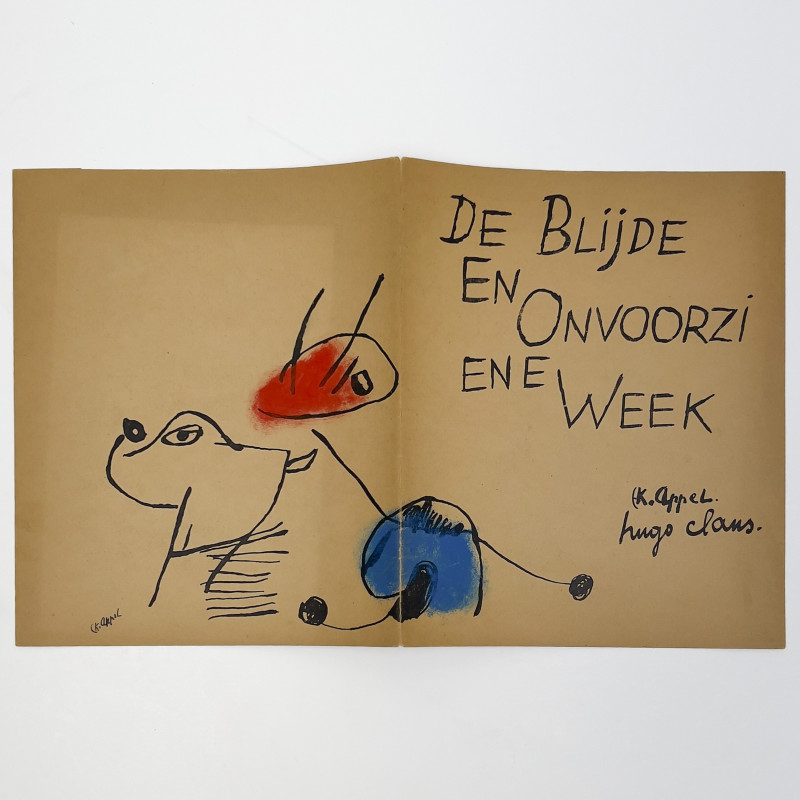 DE BLIJDE
EN ONVOORZI
ENE WEEK
K. Appel.
hugo claus.
K. Appel